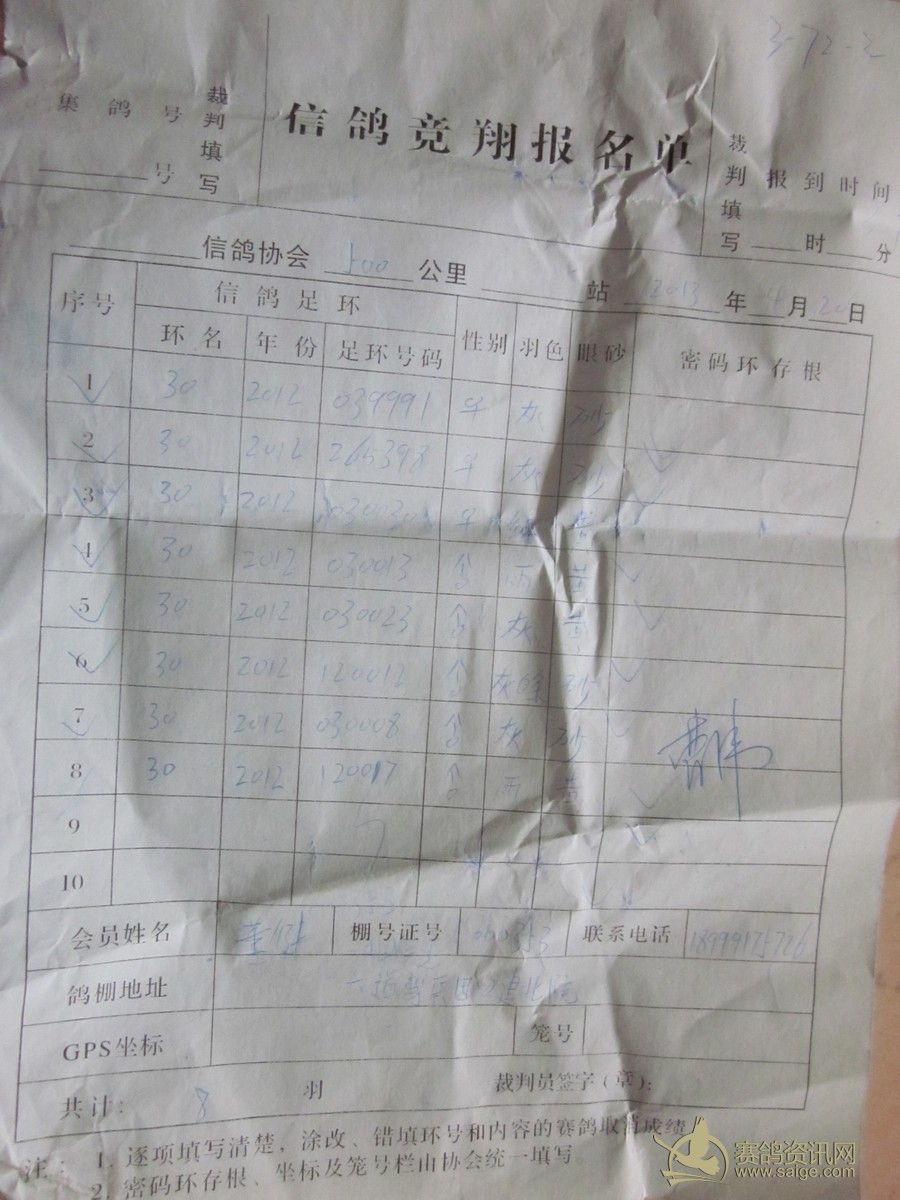 3-72-2
集鸽号 裁判填写
号
信鸽竞翔报名单
裁判填写 报到时间
时 分
信鸽协会 500 公里 站 2013 年 4 月 20 日
序号 信鸽足环 性别 羽色 眼砂 密码环存根
环名 年份 足环号码
1 30 2012 039991 ♀ 灰 砂
2 30 2012 265398 ♀ 灰 砂
3 30 2012 030030 ♀ 黄
4 30 2012 030013 ♂ 雨 黄
5 30 2012 030023 ♂ 灰 黄
6 30 2012 120012 ♂ 灰 砂
7 30 2012 030008 ♂ 灰 砂
8 30 2012 120017 ♂ 雨 黄
9
10
会员姓名 棚号证号 060353 联系电话 18999175726
鸽棚地址
GPS坐标 笼号
共计: 8 羽 裁判员签字(章):
注: 1. 逐项填写清楚,涂改、错填环号和内容的赛鸽取消成绩
2. 密码环存根、坐标及笼号栏由协会统一填写
赛鸽资讯网
www.saige.com